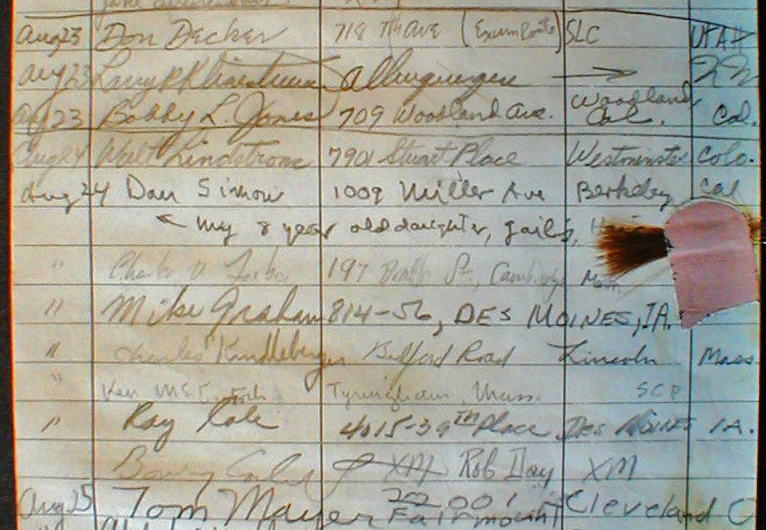 Aug 23 Don Decker 718 7th Ave (Exum Route) SLC UTAH
Aug 23 Larry Albuquerque → NM
Aug 23 Bobby L. Jones 709 Woodland Ave. Woodland Cal. Cal.
Aug 24 Walt Lindstrom 7901 Stuart Place Westminster Colo.
Aug 24 Dan Simon 1009 Miller Ave Berkeley Cal
← my 8 year old daughter, Gail's,
" 197 St., Cambridge Mass
" Mike Graham 814-56, DES MOINES, IA.
" Charles Kindleberger Bedford Road Lincoln Mass.
" Ken McIntosh Tyringham, Mass.
" Ray Kale 4015-39th Place DES MOINES IA.
Rob Day XM
Aug 25 Tom Mayer 22001 Fairmount Cleveland O